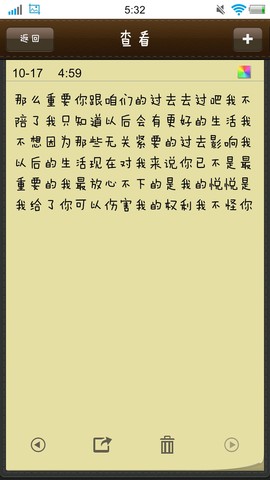 5:32
返回
查看
10-17 4:59
那么重要你跟咱们的过去去过吧我不
陪了我只知道以后会有更好的生活我
不想因为那些无关紧要的过去影响我
以后的生活现在对我来说你已不是最
重要的我最放心不下的是我的悦悦是
我给了你可以伤害我的权利我不怪你